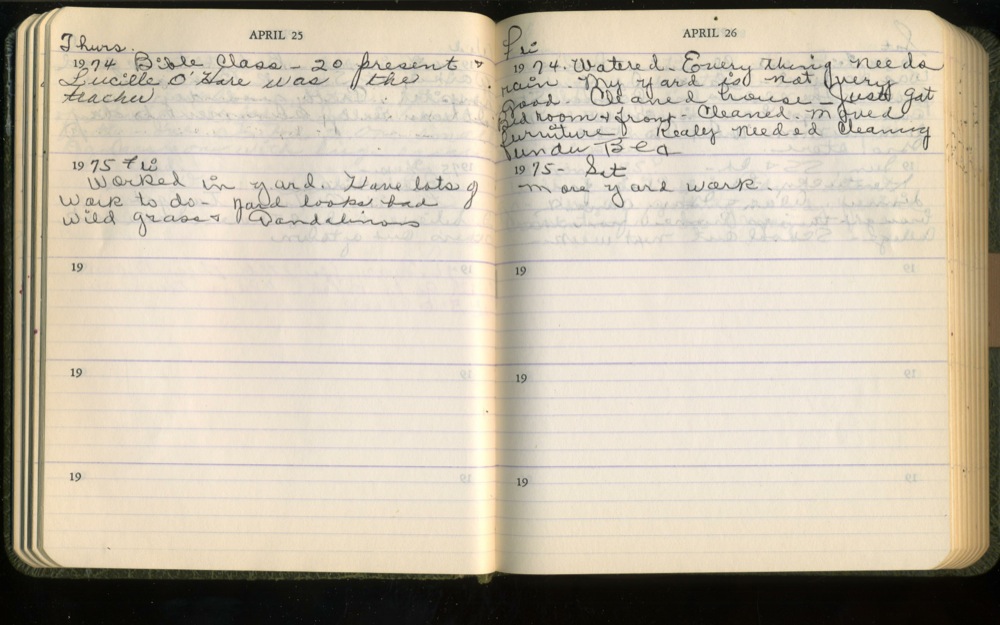 APRIL 25
Thurs.
1974 Bible Class - 20 present &
Lucille O'Hare was the
teacher
1975 Fri
Worked in yard. Have lots of
work to do - yard looks bad
wild grass & Dandalinons
19
19
19
APRIL 26
Fri
1974. Watered. Every thing needs
rain. My yard is not very
good. Cleaned house - Just got
Bed room & front - Cleaned. Moved
furniture Realy needed cleaning
under Bed
1975 - Sat
More yard work.
19
19
19